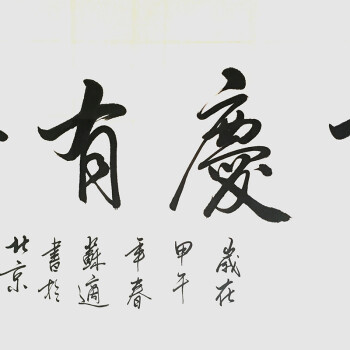 慶有
歲在
甲午
年春
蘇適
書於
北京